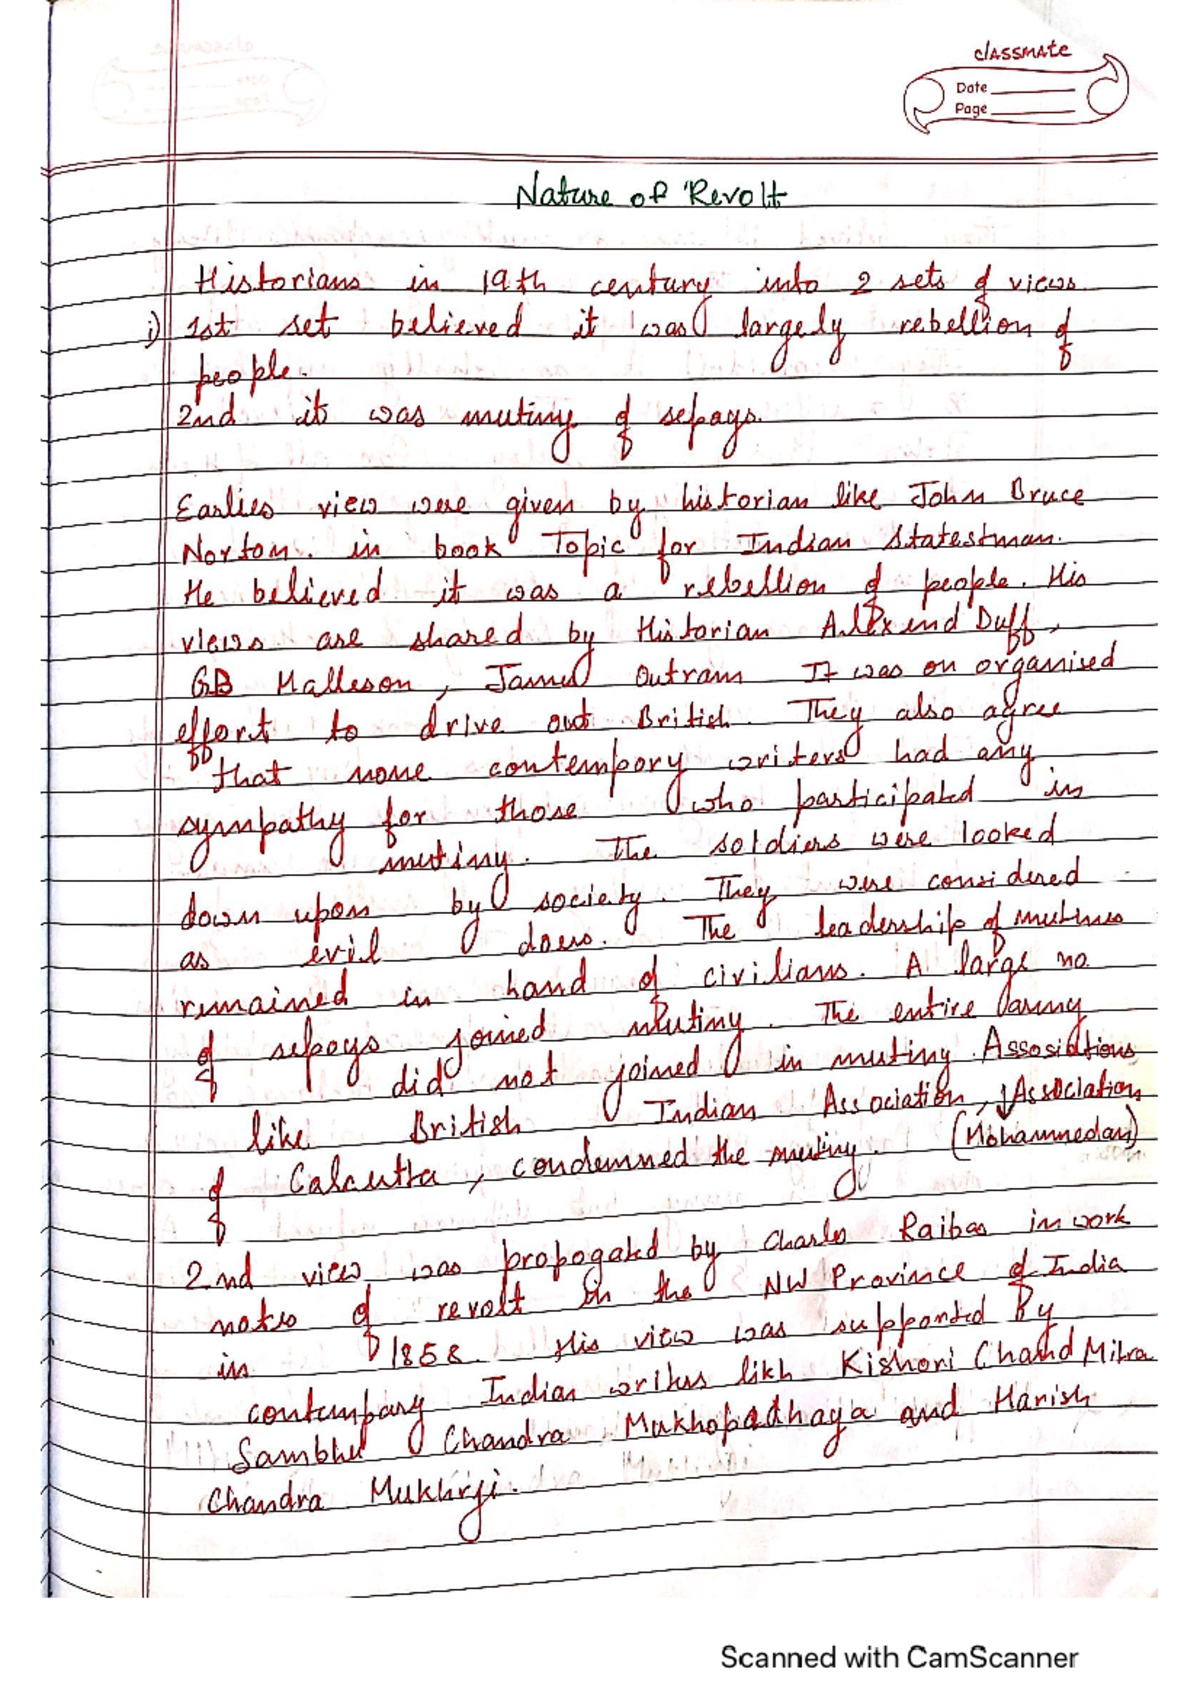 classmate
Date
Page
Nature of Revolt
Historians in 19th century into 2 sets of views
i) 1st set believed it was largely rebellion of
people.
2nd it was mutiny of sepoys.
Earlies view were given by historian like John Bruce
Norton. in book Topic for Indian Statestman.
He believed it was a rebellion of people. His
views are shared by Historian Duff,
GB Malleson, Outram It was an organised
effort to drive out British. They also agree
that none contempory writers had any
sympathy for those who participated in
mutiny. The soldiers were looked
down upon by society. They were considered
as evil doers. The leadership of mutines
remained in hand of civilians. A large no.
of sepoys joined mutiny. The entire army
did not joined in mutiny. Assosiations
like British Indian Association, Association
of Calcutta, condemned the mutiny. (Mohammedan)
2nd view was propogated by Charles Raibas in work
notes of revolt in the NW Province of India
in 1858. His view was supported By
contempary Indian writers Kishori Chand Mitra
Sambhu Chandra Mukhopadhaya and Harish
Chandra Mukherji.
Scanned with CamScanner